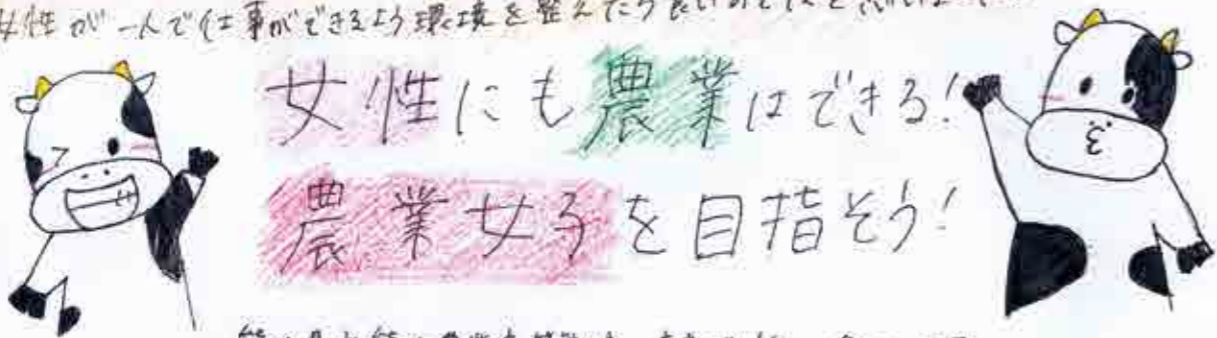 女性が一人で仕事ができるよう環境を整えたら良いのではと思いました
女性にも農業はできる!
農業女子を目指そう!